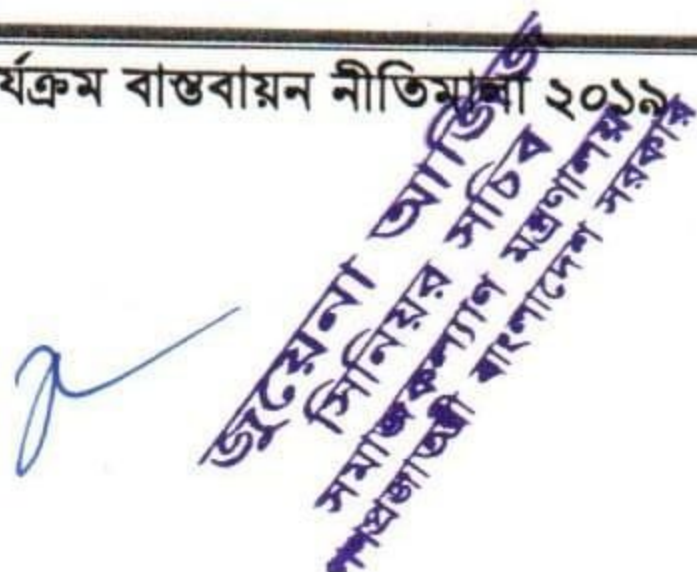 র্যক্রম বাস্তবায়ন নীতিমালা ২০১৯
জুয়েনা আজিজ
সিনিয়র সচিব
সমাজকল্যাণ মন্ত্রণালয়
গণপ্রজাতন্ত্রী বাংলাদেশ সরকার